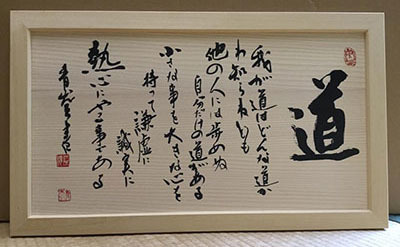 道
我が道はどんな道か
わ知らねども
他の人には歩めぬ
自分だけの道がある
小さな事も大きな心を
持て謙虚に
誠実に
熱心にやる事である